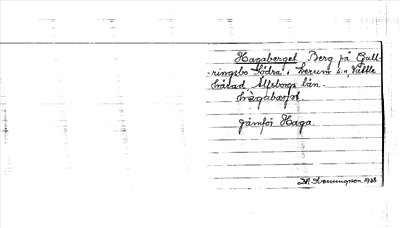 Hagaberget Berg på Gull-
ringsbo Södra i Lerum s:n Vättle
härad Älfsborgs län.
Jämför Haga.
1928